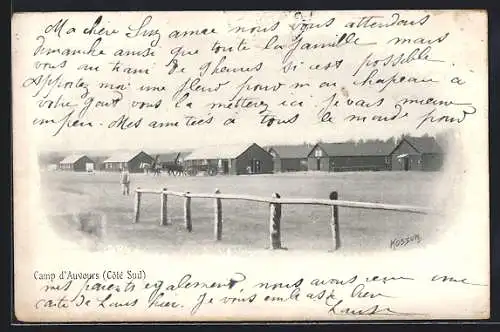 Ma chère Suz anne nous vous attendons
dimanche ainsi que toute la famille mais
vous au train de 9 heures si c'est possible.
Apportez moi une fleur pour m on chapeau à
votre gout vous la metterez ici. Je vais mieux
un peu. Mes amitiés à tous le monde pour
KOSSUTH
Camp d'Auvours (Côté Sud)
mes parents également, nous avons reçu une
carte de Laure hier. Je vous embrasse bien